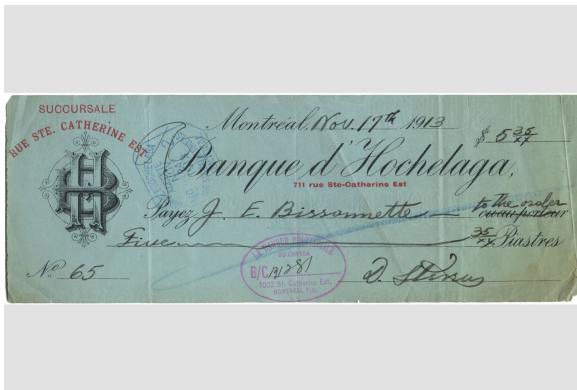 SUCCURSALE
RUE STE. CATHERINE EST
Montréal, Nov. 17th 1913
$ 5 35/xx
Banque d'Hochelaga,
711 rue Ste-Catherine Est
Payez J. E. Bissonnette to the order
ou au porteur
Five 35/xx Piastres
LA BANQUE PROVINCIALE
DU CANADA
No 65
B/C 191281
1002 St. Catherine Est.
MONTREAL, P.Q.